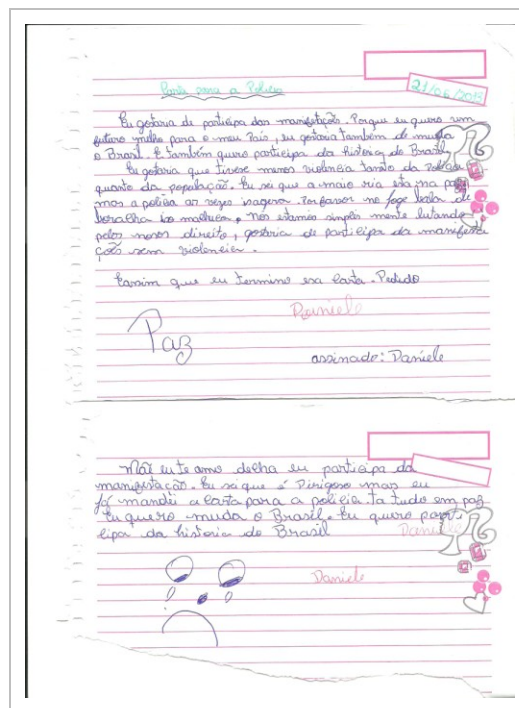 Carta para a Policia
21/06/2013
Eu gostaria de participa das manifetação. Porque eu quero um
futuro milho para o meu País, eu gostaria também de muda
o Brasil. E também quero participa da historia do Brasil
Eu gostaria que tivese menos violencia tanto da Policia
quanto da população. Eu sei que a maio ria esta ina paz
mas a policia as vezes isagera. Porfavor não joge bala de
boracha iso malhuca, nos estamos simples mente lutando
pelos nosos direito, gostaria de participa da manifesta
çoõs sem violencia.
Easim que eu termino esa Carta. Pedido
Daniele
Paz
assinado: Daniele
Mãe eu te amo deixa eu participa da
manifestação. Eu sei que é Dirigoso mas eu
já mandei a carta para a policia ta tudo em paz
Eu quero muda o Brasil. Eu quero parti
cipa da historia do Brasil Daniele
Daniele